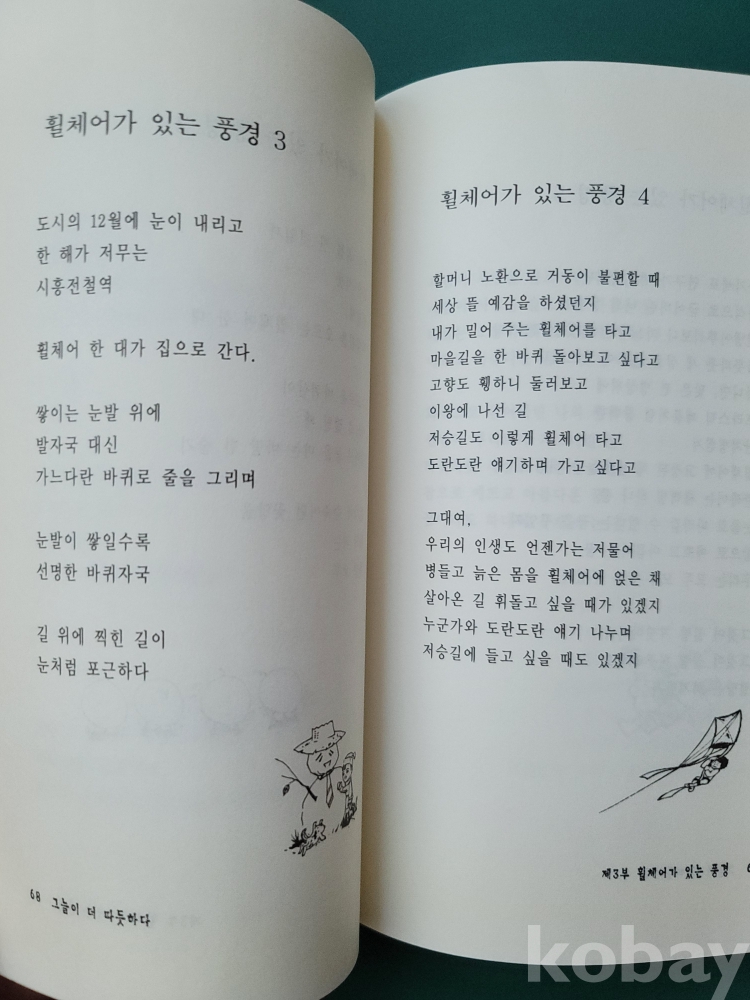 휠체어가 있는 풍경 3
도시의 12월에 눈이 내리고
한 해가 저무는
시흥전철역
휠체어 한 대가 집으로 간다.
쌓이는 눈발 위에
발자국 대신
가느다란 바퀴로 줄을 그리며
눈발이 쌓일수록
선명한 바퀴자국
길 위에 찍힌 길이
눈처럼 포근하다
68 그늘이 더 따듯하다
휠체어가 있는 풍경 4
할머니 노환으로 거동이 불편할 때
세상 뜰 예감을 하셨던지
내가 밀어 주는 휠체어를 타고
마을길을 한 바퀴 돌아보고 싶다고
고향도 휑하니 둘러보고
이왕에 나선 길
저승길도 이렇게 휠체어 타고
도란도란 얘기하며 가고 싶다고
그대여,
우리의 인생도 언젠가는 저물어
병들고 늙은 몸을 휠체어에 얹은 채
살아온 길 휘돌고 싶을 때가 있겠지
누군가와 도란도란 얘기 나누며
저승길에 들고 싶을 때도 있겠지
제3부 휠체어가 있는 풍경
kobay